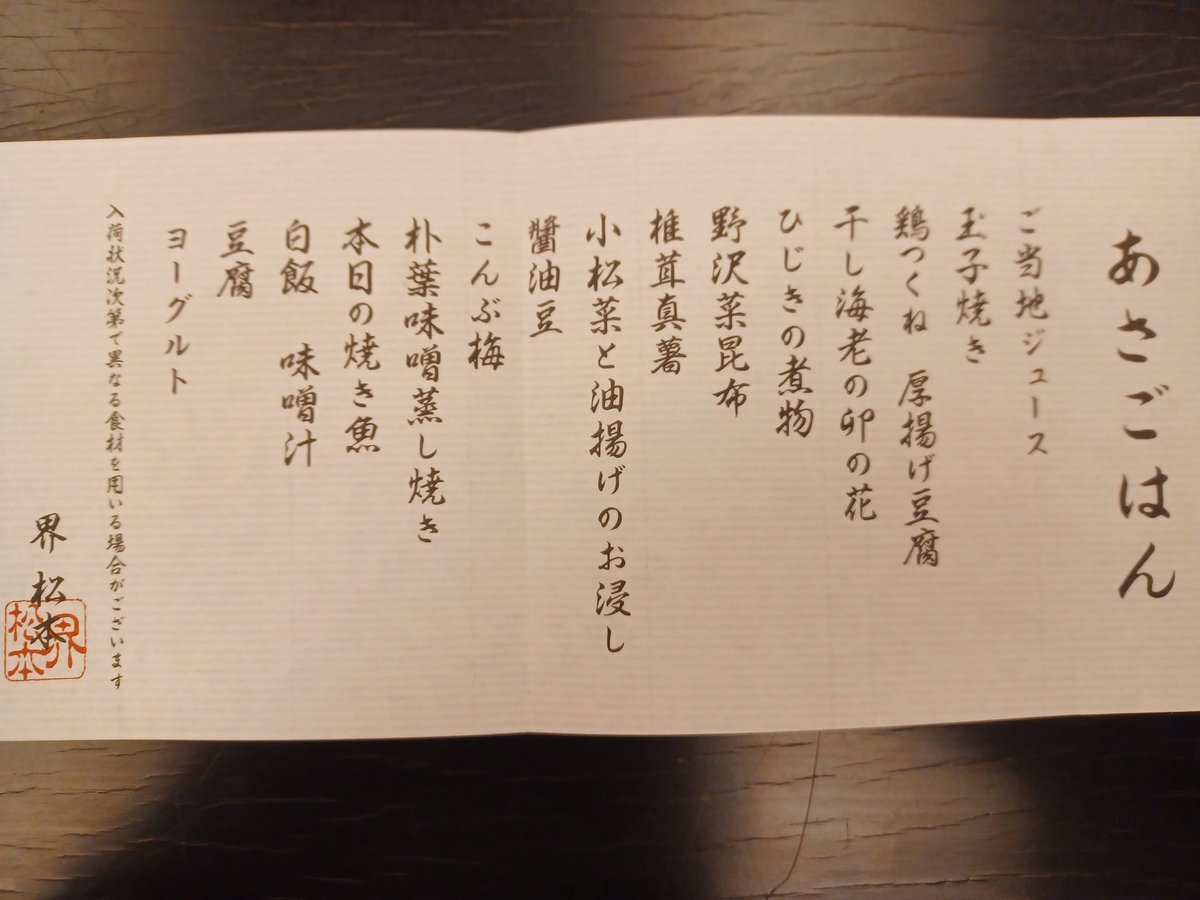 あさごはん
ご当地ジュース
玉子焼き
鶏つくね　厚揚げ豆腐
干し海老の卯の花
ひじきの煮物
野沢菜昆布
椎茸真薯
小松菜と油揚げのお浸し
醬油豆
こんぶ梅
朴葉味噌蒸し焼き
本日の焼き魚
白飯　味噌汁
豆腐
ヨーグルト
入荷状況次第で異なる食材を用いる場合がございます
界　松本
界松本